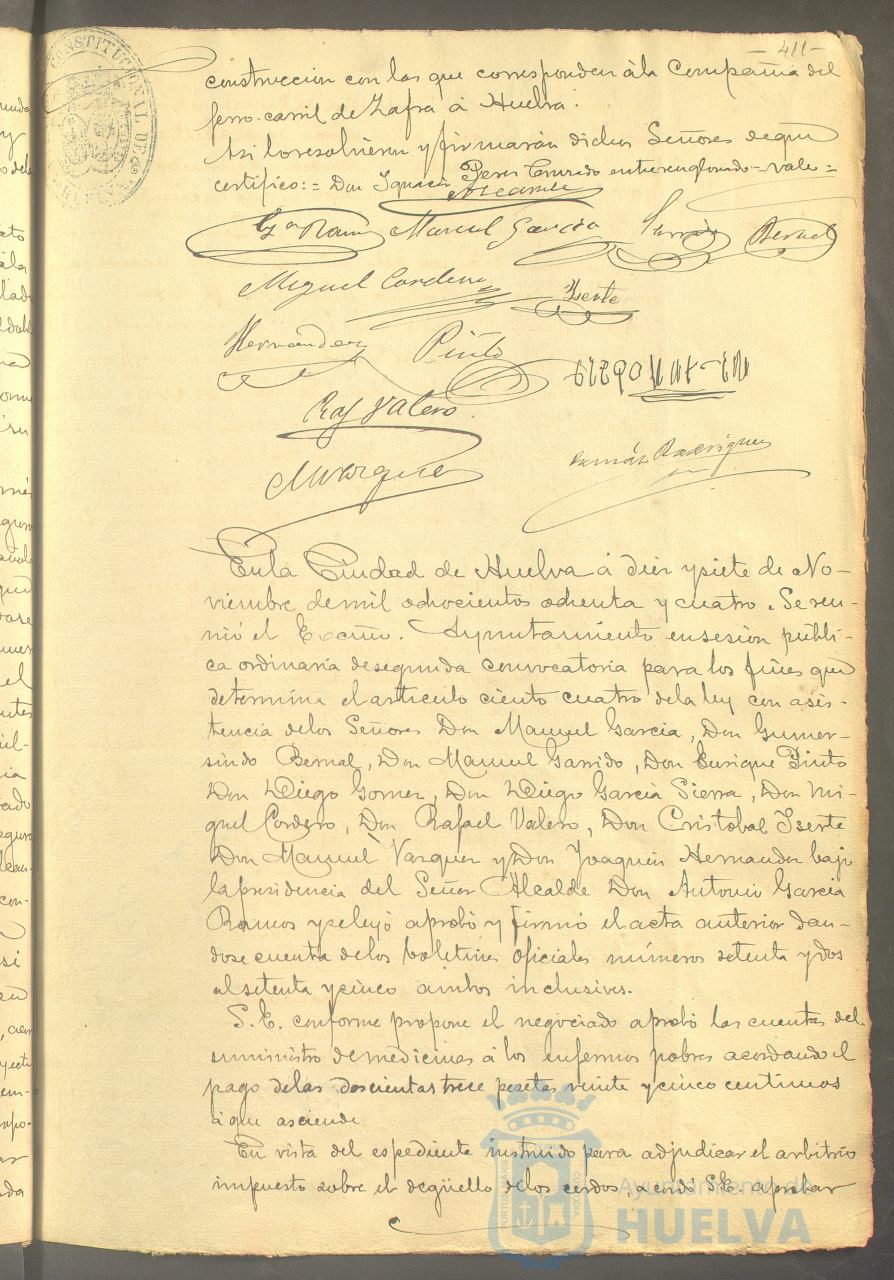 -411-
construccion con las que corresponden á la Compañia del
ferro-carril de Zafra á Huelva.
Asi lo resolvieron y firmarán dichos Señores de que
certifico:= Don Ignacio Perez entrerenglonado = vale =
Gª Ramos Manuel Garcia Garrido Bernal
Miguel Cordero Iserte
Hernandez Pinto
Raf Valero
MVazquez Tomás Rodriguez
En la Ciudad de Huelva á diez y siete de No-
viembre de mil ochocientos ochenta y cuatro. Se reu-
nió el Excmo. Ayuntamiento en sesion públi-
ca ordinaria de segunda convocatoria para los fines que
determina el articulo ciento cuatro de la ley con asis-
tencia de los Señores Don Manuel Garcia, Don Gumer-
sindo Bernal, Don Manuel Garrido, Don Enrique Pinto
Don Diego Gomez, Don Diego Garcia Sierra, Don Mi-
guel Cordero, Don Rafael Valero, Don Cristobal Iserte
Don Manuel Vazquez y Don Joaquin Hernandez bajo
la presidencia del Señor Alcalde Don Antonio Garcia
Ramos y se leyó aprobó y firmó el acta anterior dan-
dose cuenta de los boletines oficiales números setenta y dos
al setenta y cinco ambos inclusives.
S. E. conforme propone el negociado aprobó las cuentas del
suministro de medicinas á los enfermos pobres acordando el
pago de las doscientas trece pesetas veinte y cinco centimos
á que asciende
En vista del espediente instruido para adjudicar el arbitrio
impuesto sobre el degüello de los cerdos, acordó S.E. aprobar
Ayuntamiento de
HUELVA